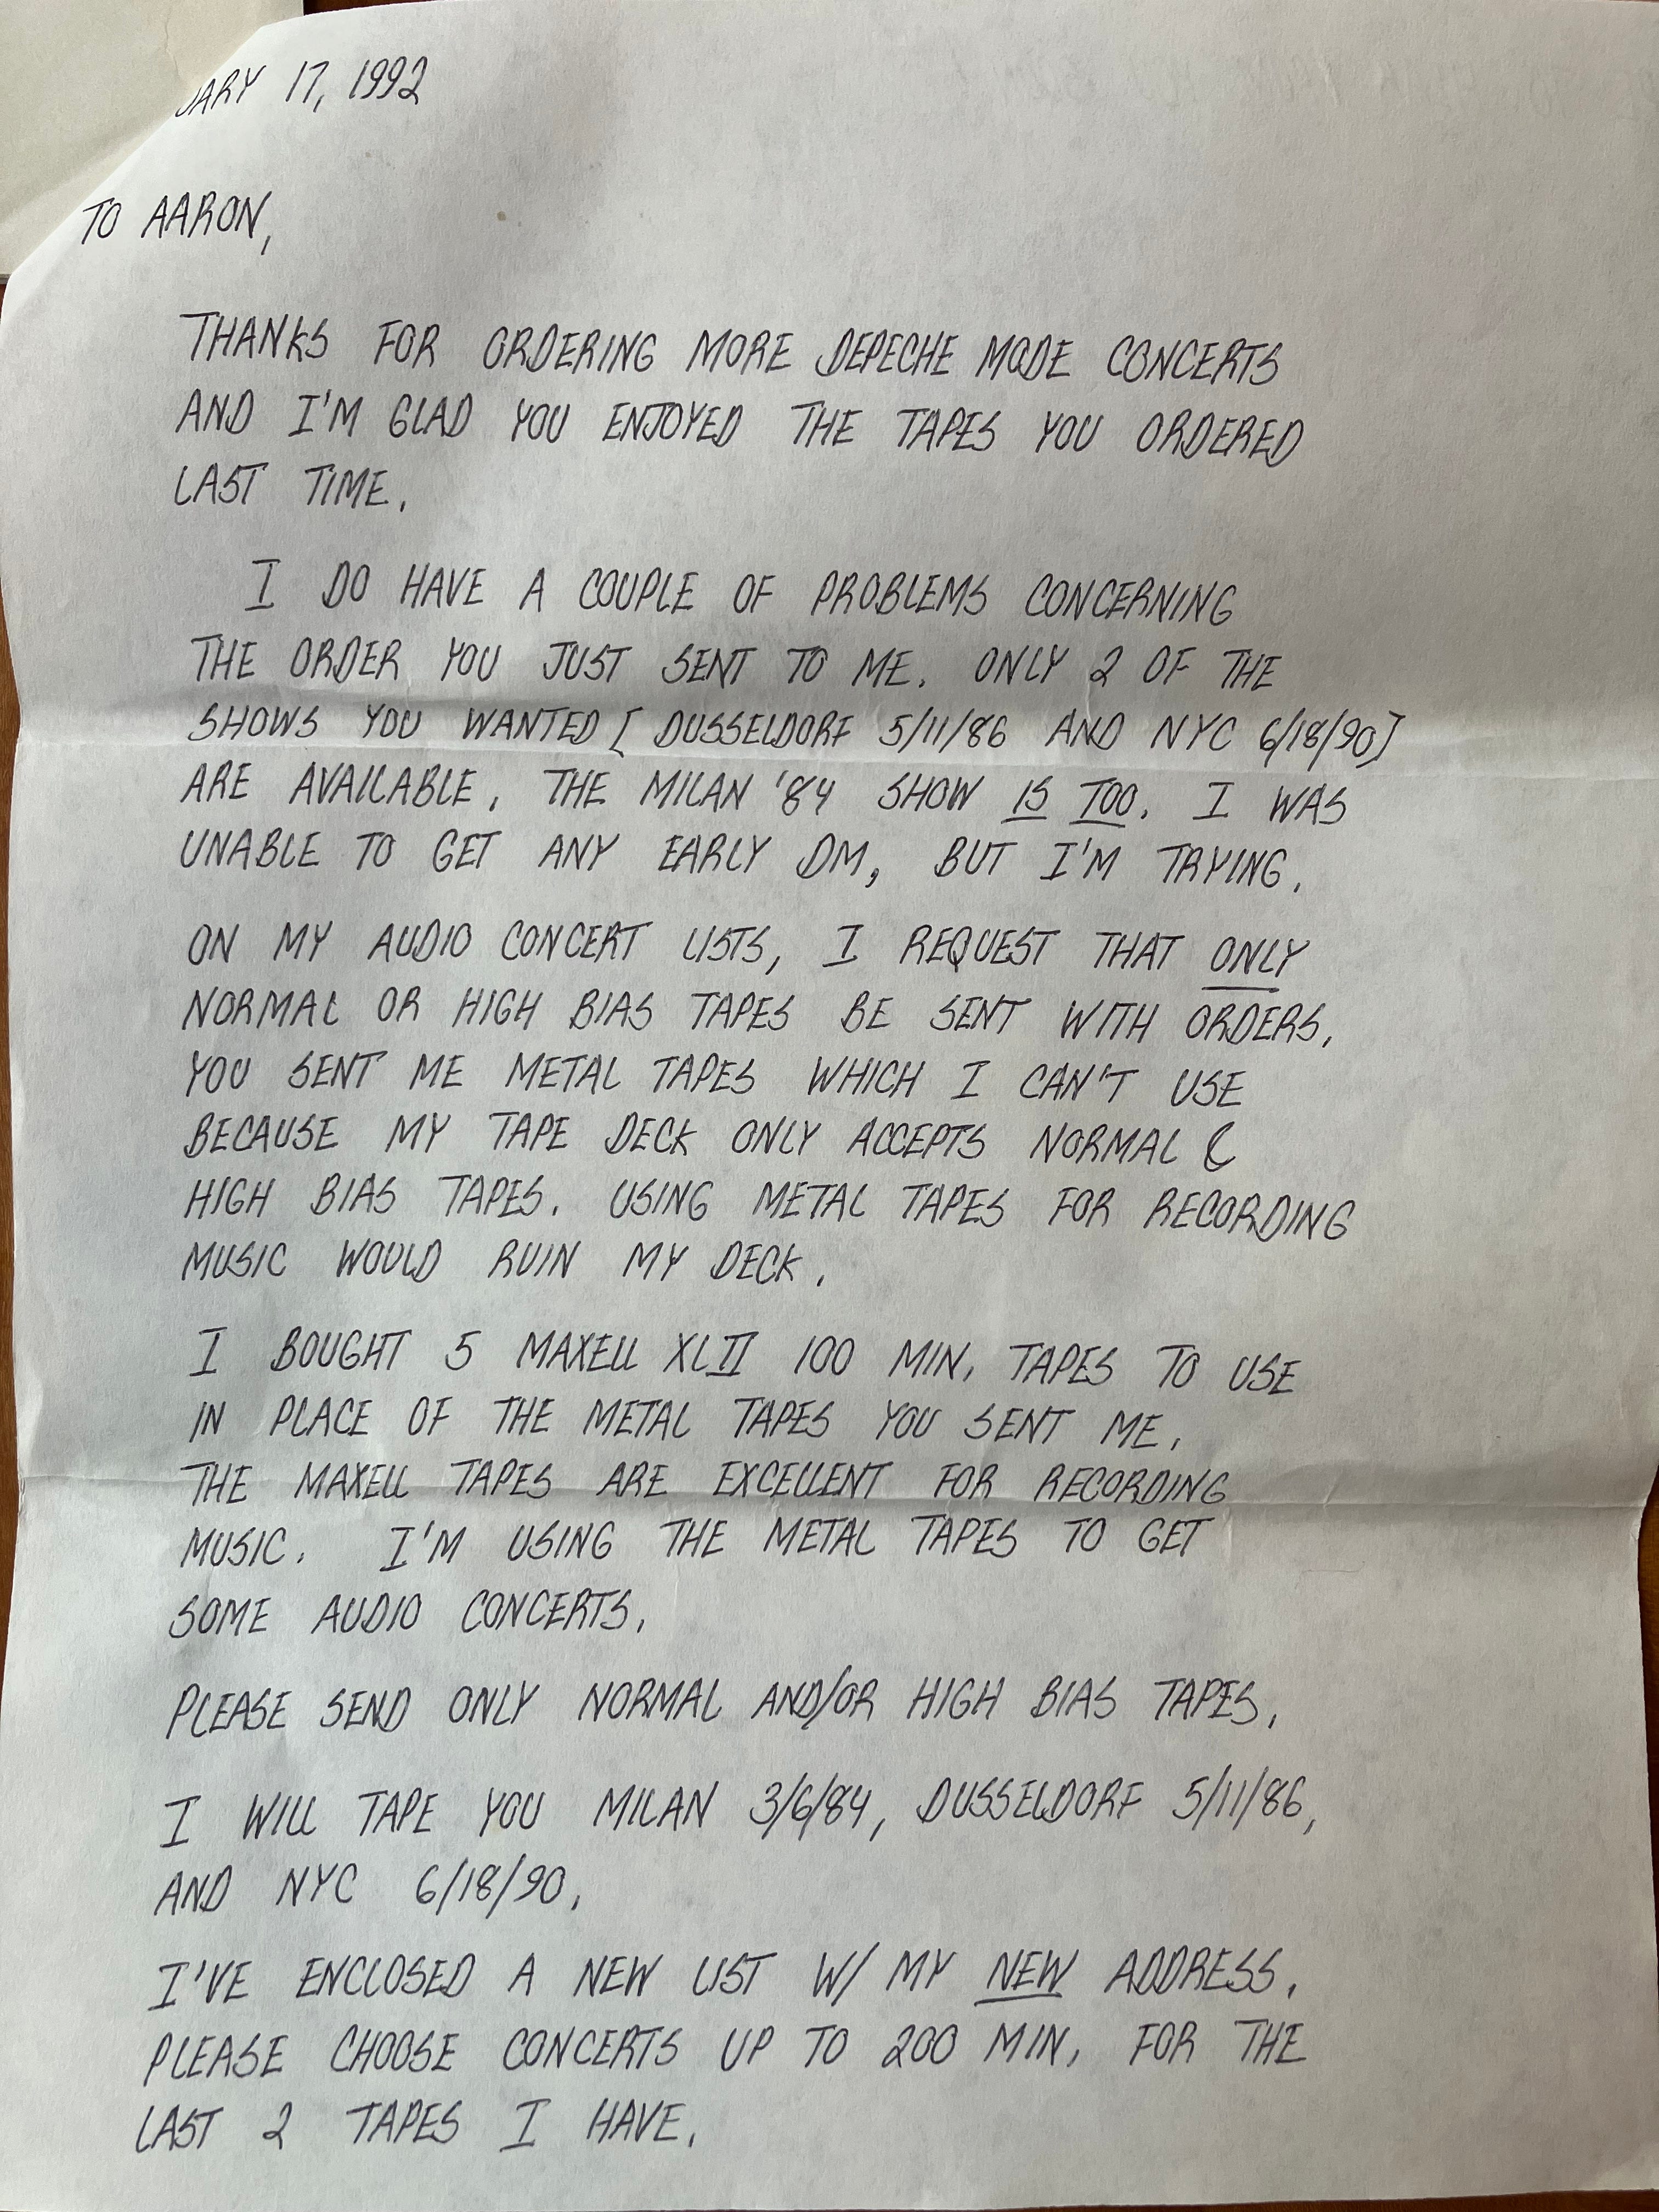 UARY 17, 1992
TO AARON,
THANKS FOR ORDERING MORE DEPECHE MODE CONCERTS
AND I'M GLAD YOU ENJOYED THE TAPES YOU ORDERED
LAST TIME.
I DO HAVE A COUPLE OF PROBLEMS CONCERNING
THE ORDER YOU JUST SENT TO ME. ONLY 2 OF THE
SHOWS YOU WANTED [DUSSELDORF 5/11/86 AND NYC 6/18/90]
ARE AVAILABLE. THE MILAN '84 SHOW IS TOO. I WAS
UNABLE TO GET ANY EARLY DM, BUT I'M TRYING.
ON MY AUDIO CONCERT LISTS, I REQUEST THAT ONLY
NORMAL OR HIGH BIAS TAPES BE SENT WITH ORDERS.
YOU SENT ME METAL TAPES WHICH I CAN'T USE
BECAUSE MY TAPE DECK ONLY ACCEPTS NORMAL &
HIGH BIAS TAPES. USING METAL TAPES FOR RECORDING
MUSIC WOULD RUIN MY DECK.
I BOUGHT 5 MAXELL XLII 100 MIN. TAPES TO USE
IN PLACE OF THE METAL TAPES YOU SENT ME.
THE MAXELL TAPES ARE EXCELLENT FOR RECORDING
MUSIC. I'M USING THE METAL TAPES TO GET
SOME AUDIO CONCERTS.
PLEASE SEND ONLY NORMAL AND/OR HIGH BIAS TAPES.
I WILL TAPE YOU MILAN 3/6/84, DUSSELDORF 5/11/86,
AND NYC 6/18/90.
I'VE ENCLOSED A NEW LIST W/ MY NEW ADDRESS.
PLEASE CHOOSE CONCERTS UP TO 200 MIN. FOR THE
LAST 2 TAPES I HAVE.